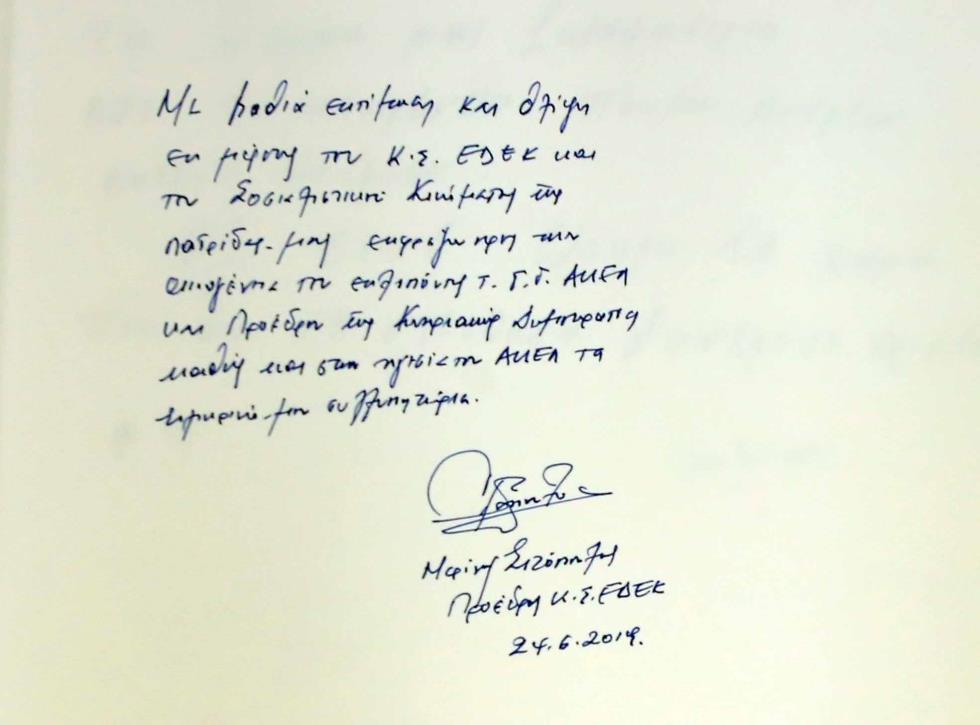 Με βαθιά εκτίμηση και θλίψη
εκ μέρους του Κ.Σ. ΕΔΕΚ και
του Σοσιαλιστικού Κινήματος της
πατρίδας μας εκφράζω προς την
οικογένεια του εκλιπόντος τ. Γ.Γ. ΑΚΕΛ
και Προέδρου της Κυπριακής Δημοκρατίας
καθώς και στην ηγεσία του ΑΚΕΛ τα
ειλικρινά μου συλλυπητήρια.
Μαρίνος Σιζόπουλος
Πρόεδρος Κ.Σ. ΕΔΕΚ
24.6.2019.